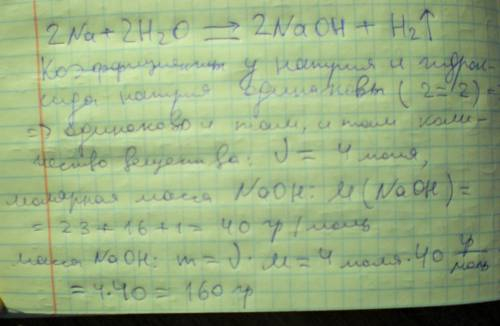 2Na + 2H₂O ⟶ 2NaOH + H₂↑
Коэффициенты у натрия и гидрок-
сида натрия одинаковы (2=2) =
=> одинаково и там, и там коли-
чество вещества: ν = 4 моля,
молярная масса NaOH: M(NaOH) =
= 23 + 16 + 1 = 40 гр/моль
масса NaOH: m = ν · M = 4 моля · 40 гр/моль
= 4·40 = 160 гр